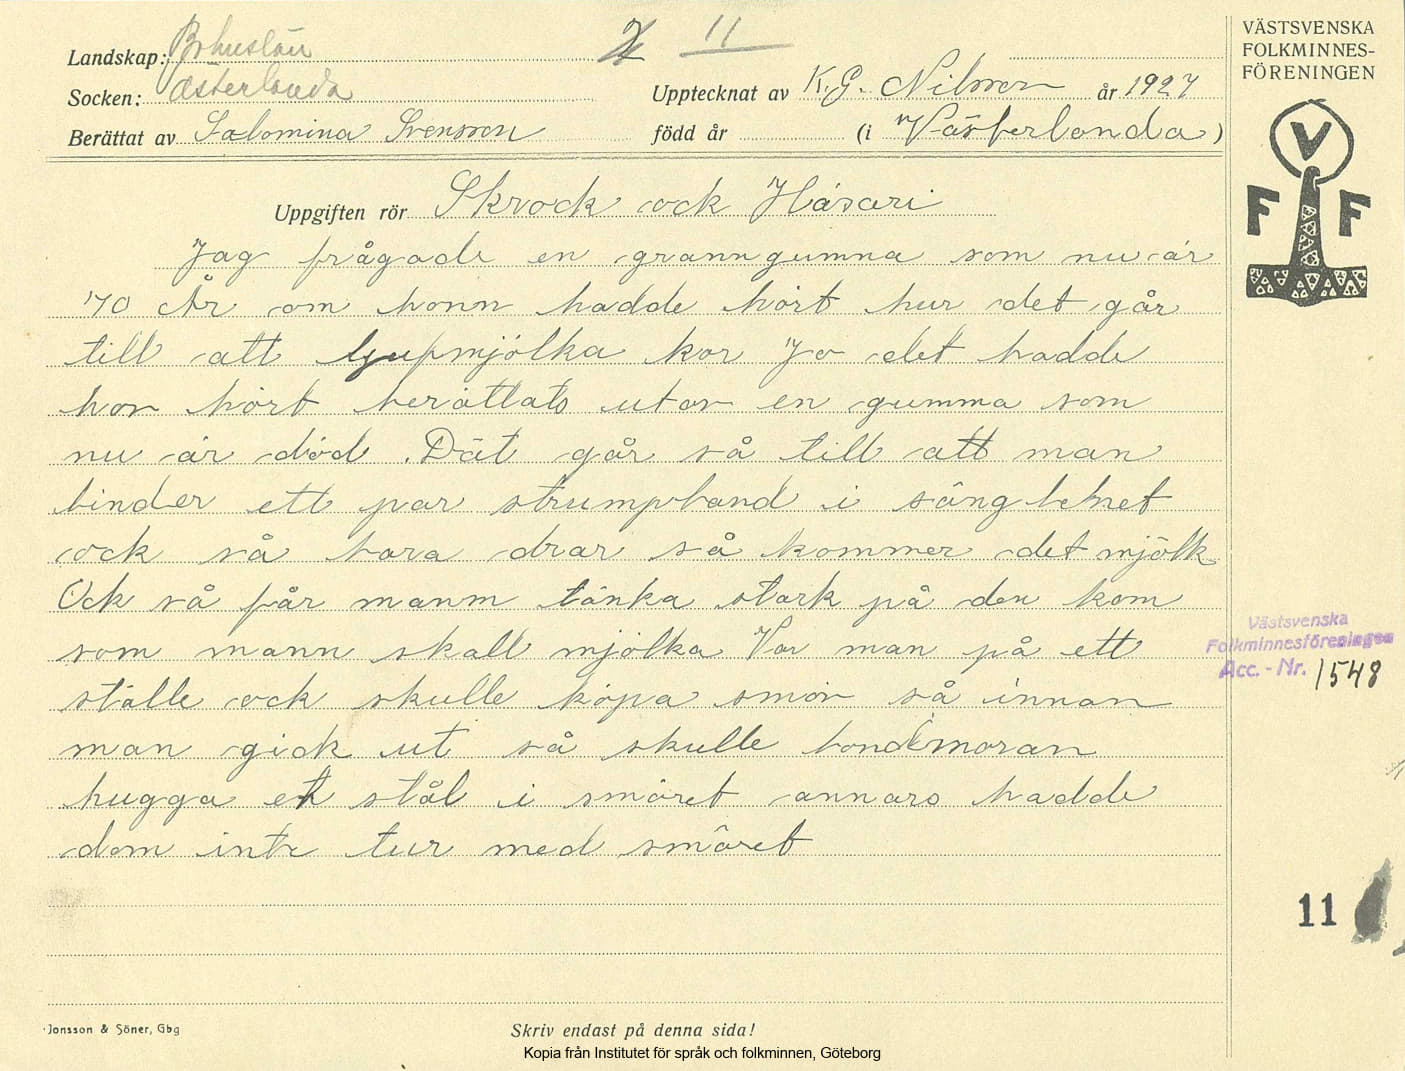 Landskap: Bohuslän
Socken: Västerlanda
Berättat av Salomina Svensson
11
Upptecknat av K.G. Nilsson år 1927
född år (i Västerlanda)
VÄSTSVENSKA
FOLKMINNES-
FÖRENINGEN
V
F F
Uppgiften rör Skrock ock Häxeri
Jag frågade en granngumma som nu är
70 År om honn hadde hört hur det går
till att tjupmjölka kor Jo det hadde
hon hört berättats utav en gumma som
nu är död. Dät går så till att man
binder ett par strumpband i säng
ock så bara drar så kommer det mjölk
Ock så får mann tänka stark på den kom
som mann skall mjölka Var man på ett
ställe ock skulle köpa smör så innan
man gick ut så skulle bondmoran
hugga ett stål i smöret annars hadde
dom inte tur med smöret
Västsvenska
Folkminnesföreningen
Acc. - Nr. 1548
11
Jonsson & Söner, Gbg
Skriv endast på denna sida!
Kopia från Institutet för språk och folkminnen, Göteborg